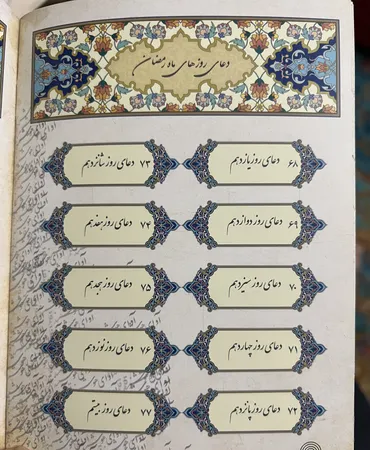 دعای روزهای ماه رمضان
۶۸ دعای روز یازدهم
۷۳ دعای روز شانزدهم
۶۹ دعای روز دوازدهم
۷۴ دعای روز هفدهم
۷۰ دعای روز سیزدهم
۷۵ دعای روز هجدهم
۷۱ دعای روز چهاردهم
۷۶ دعای روز نوزدهم
۷۲ دعای روز پانزدهم
۷۷ دعای روز بیستم